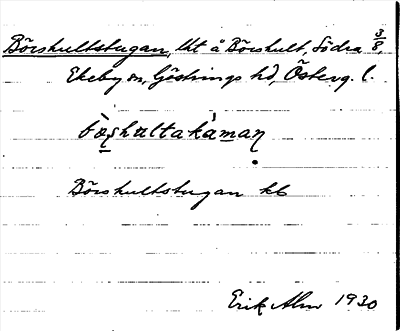 Börshultstugan, lht å Börshult, Södra 3/8,
Ekeby sn, Göstrings hd, Österg. l.
Börshultstugan kb
Erik Alm 1930